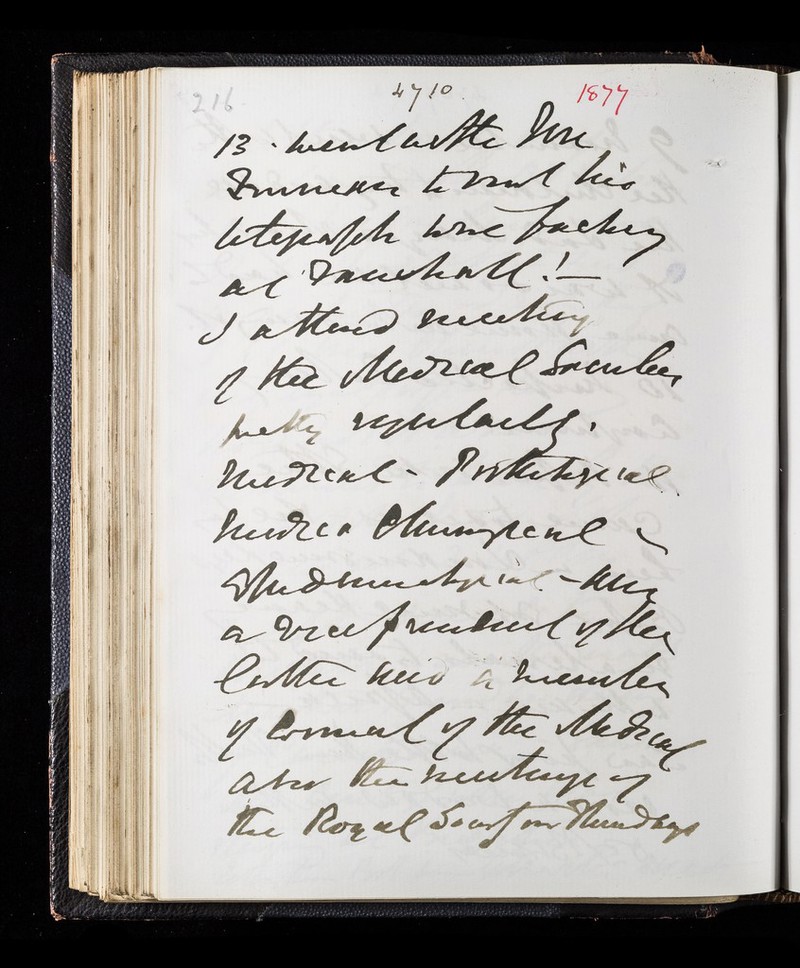 216
4710.
1877
13. went with Jno
to visit his
telegraph wire factory
at Vauxhall! —
I attend meeting
of the Medical Societies
pretty regularly.
Medical - Pathological
Medico Chirurgical &
being
a Vice president of the
latter and a member
of Council of the Medical
also the meetings of
the Royal Society on Thursdays